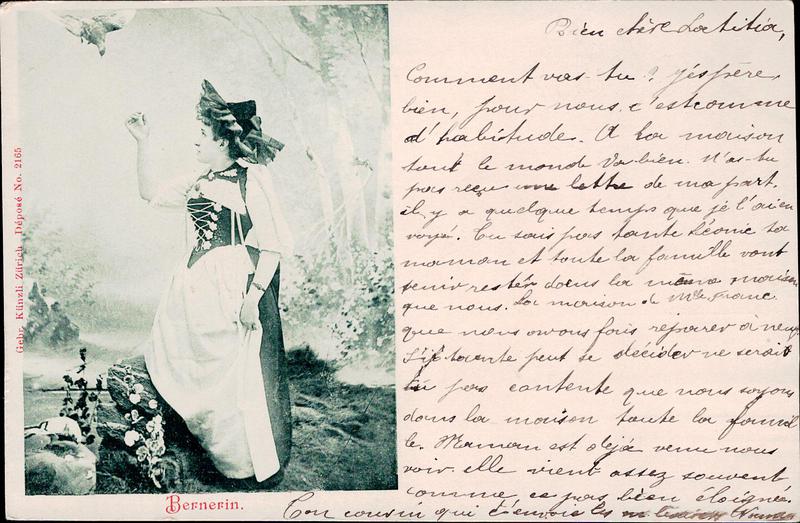 Bien chère Laetitia,
Comment vas-tu ? j'éspère
bien, pour nous, c'est comme
d'habitude. A la maison
tout le monde va bien. N'as-tu
pas reçu une lettre de ma part,
il, y a quelque temps que je l'ai en
voyé. Tu sais pas tante Léonie ta
maman et toute la famille vont
venir rester dans la même maison
que nous. La maison de Mlle Franc
que nous avons fais réparer à neuf
Si tante peut se décider ne serait
tu pas contente que nous soyons
dans la maison toute la famil
le. Maman est déjà venu nous
voir. elle vient assez souvent
comme, ce pas, bien éloignée.
Ton cousin qui t'envoie les
Bernerin.
Gebr. Künzli Zürich Déposé No. 2165